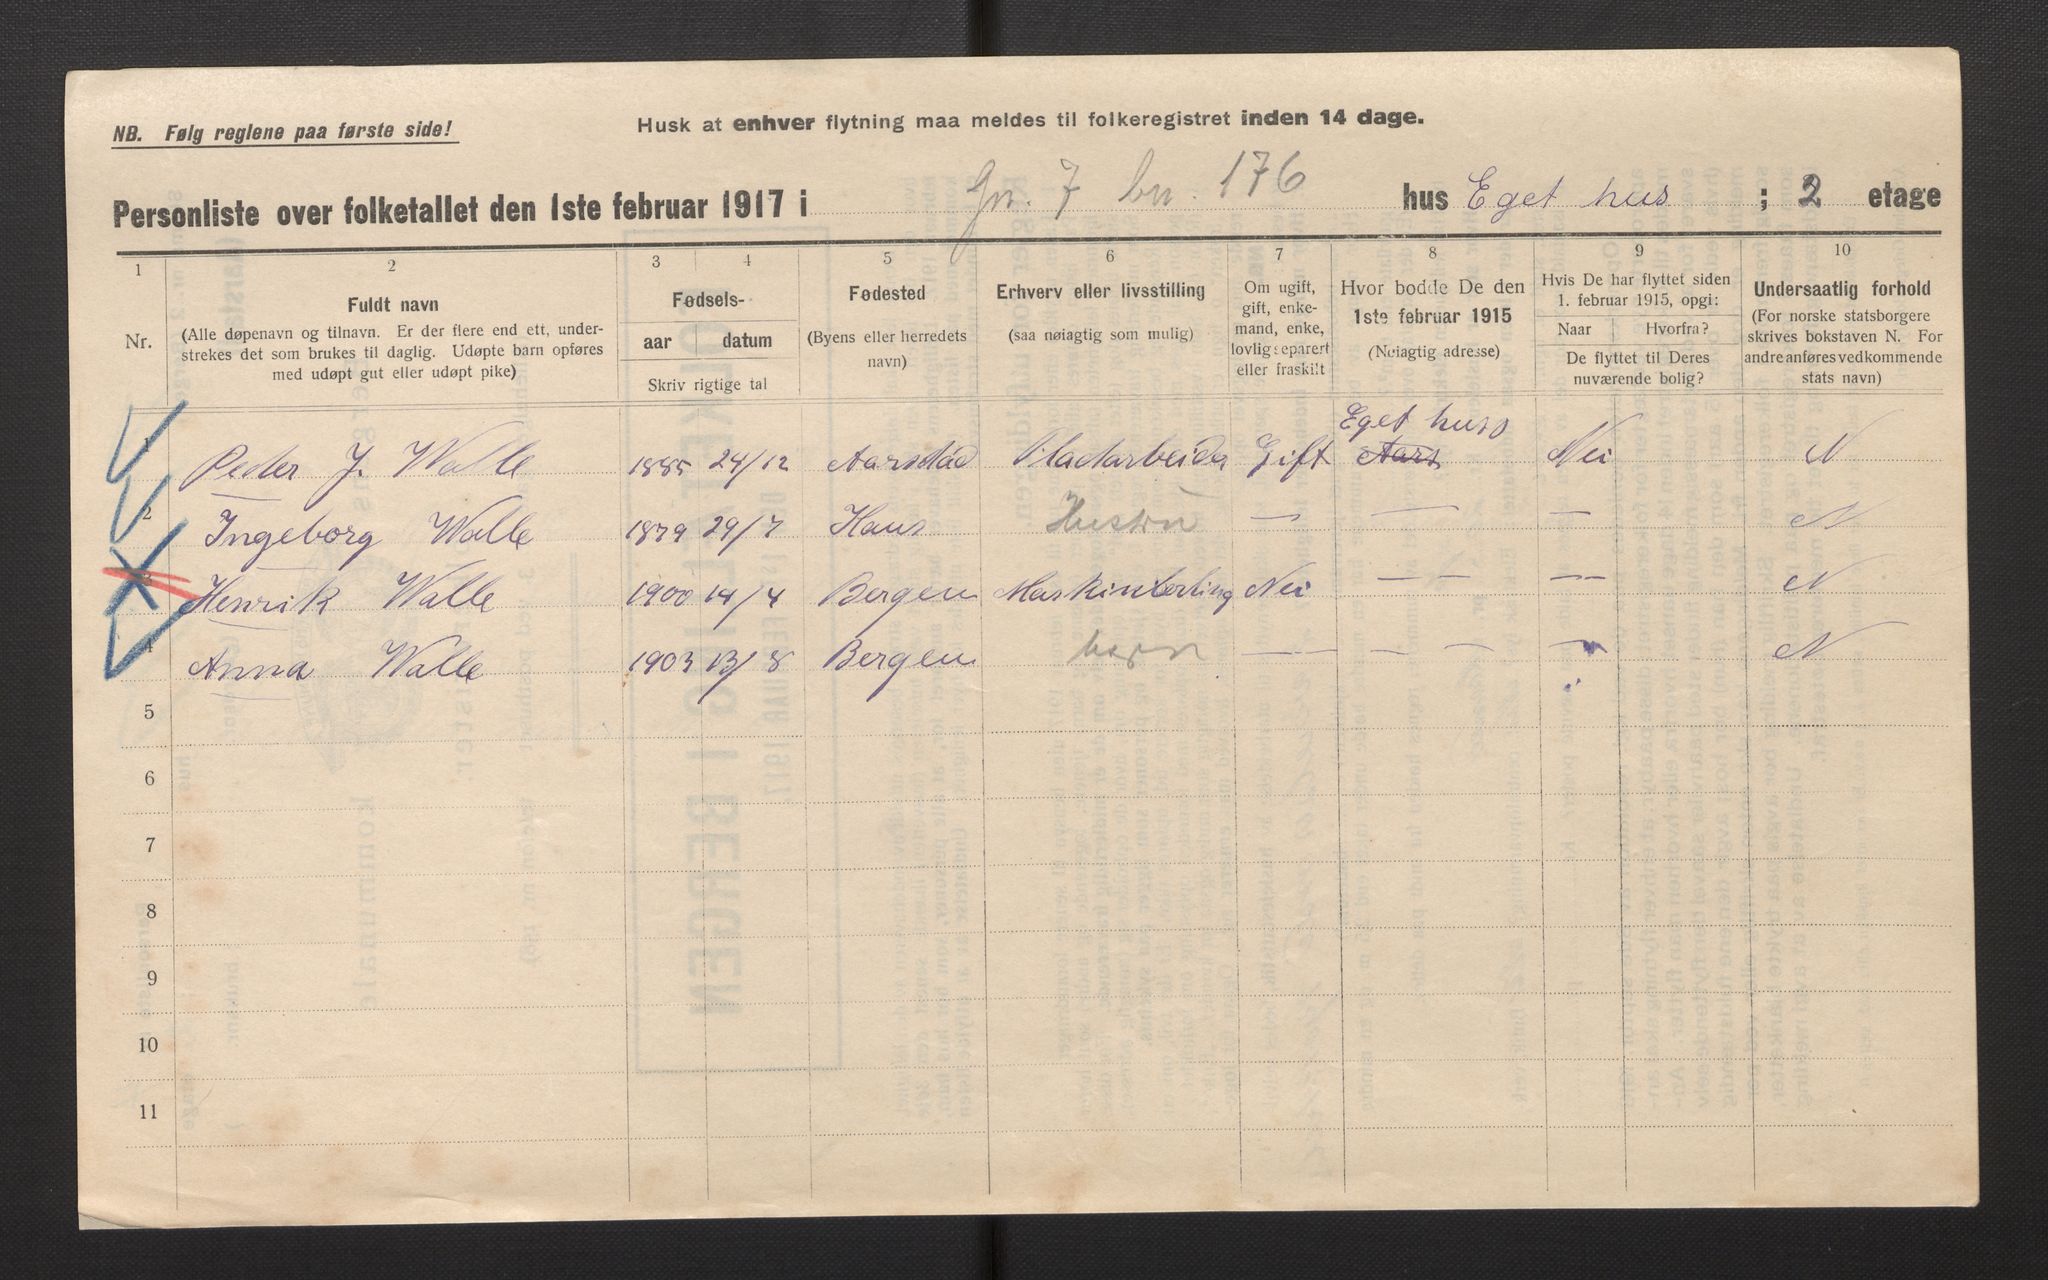 NB. Følg reglene paa første side!
Husk at enhver flytning maa meldes til folkeregistret inden 14 dage.
Personliste over folketallet den 1ste februar 1917 i Gn. 7 bn. 176 hus Eget hus ; 2 etage
1 2 3 4 5 6 7 8 9 10
Nr.
Fuldt navn
(Alle døpenavn og tilnavn. Er der flere end ett, under-
strekes det som brukes til daglig. Udøpte barn opføres
med udøpt gut eller udøpt pike)
Fødsels-
aar datum
Skriv rigtige tal
Fødested
(Byens eller herredets
navn)
Erhverv eller livsstilling
(saa nøiagtig som mulig)
Om ugift,
gift, enke-
mand, enke,
lovlig separert
eller fraskilt
Hvor bodde De den
1ste februar 1915
(Nøiagtig adresse)
Hvis De har flyttet siden
1. februar 1915, opgi:
Naar Hvorfra?
De flyttet til Deres
nuværende bolig?
Undersaatlig forhold
(For norske statsborgere
skrives bokstaven N. For
andre anføres vedkommende
stats navn)
Eget huso
1 Peder J. Walle 1885 24/12 Aarstad Pladarbeider Gift Aars Nei N
2 Ingeborg Walle 1879 29/7 Haus Hustru — — — N
3 Henrik Walle 1900 14/4 Bergen Maskinlerling Nei — — — N
4 Anna Walle 1903 13/8 Bergen barn — — — — — N
5
6
7
8
9
10
11